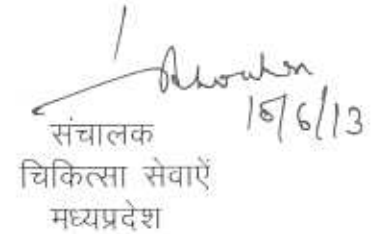 15/6/13
संचालक
चिकित्सा सेवाऐं
मध्यप्रदेश